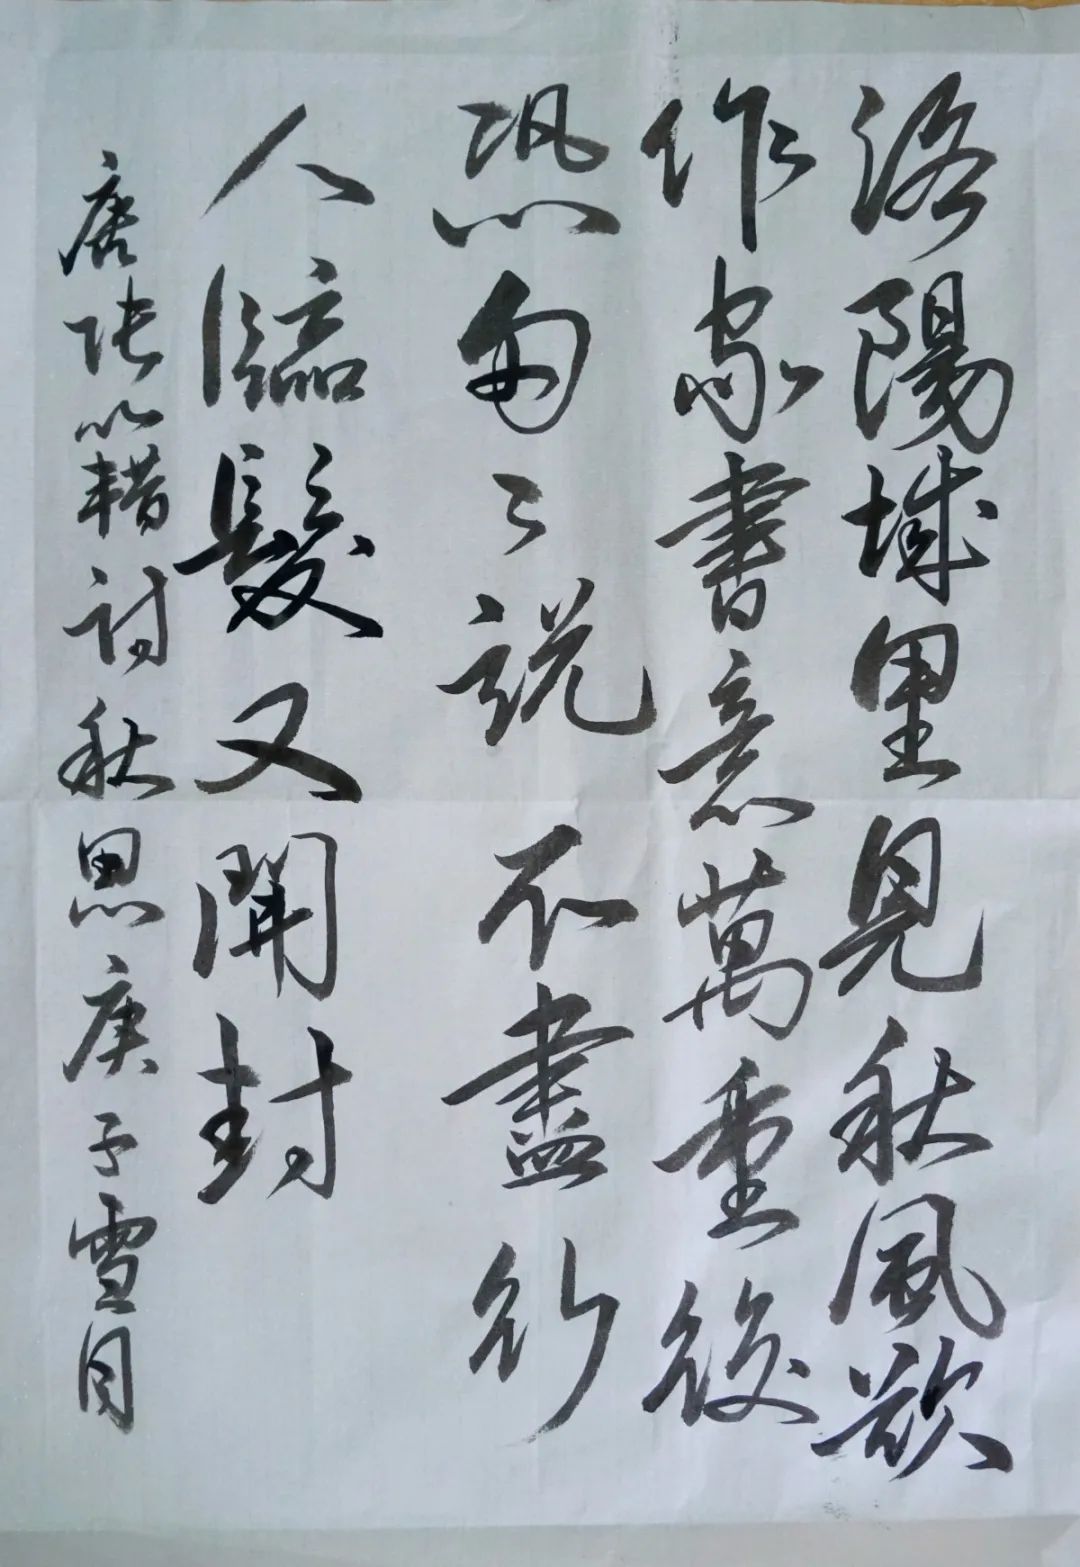 洛陽城里見秋風欲
作家書意萬重復
恐匆々説不盡行
人臨髮又開封
唐張籍詩秋思庚子雪月